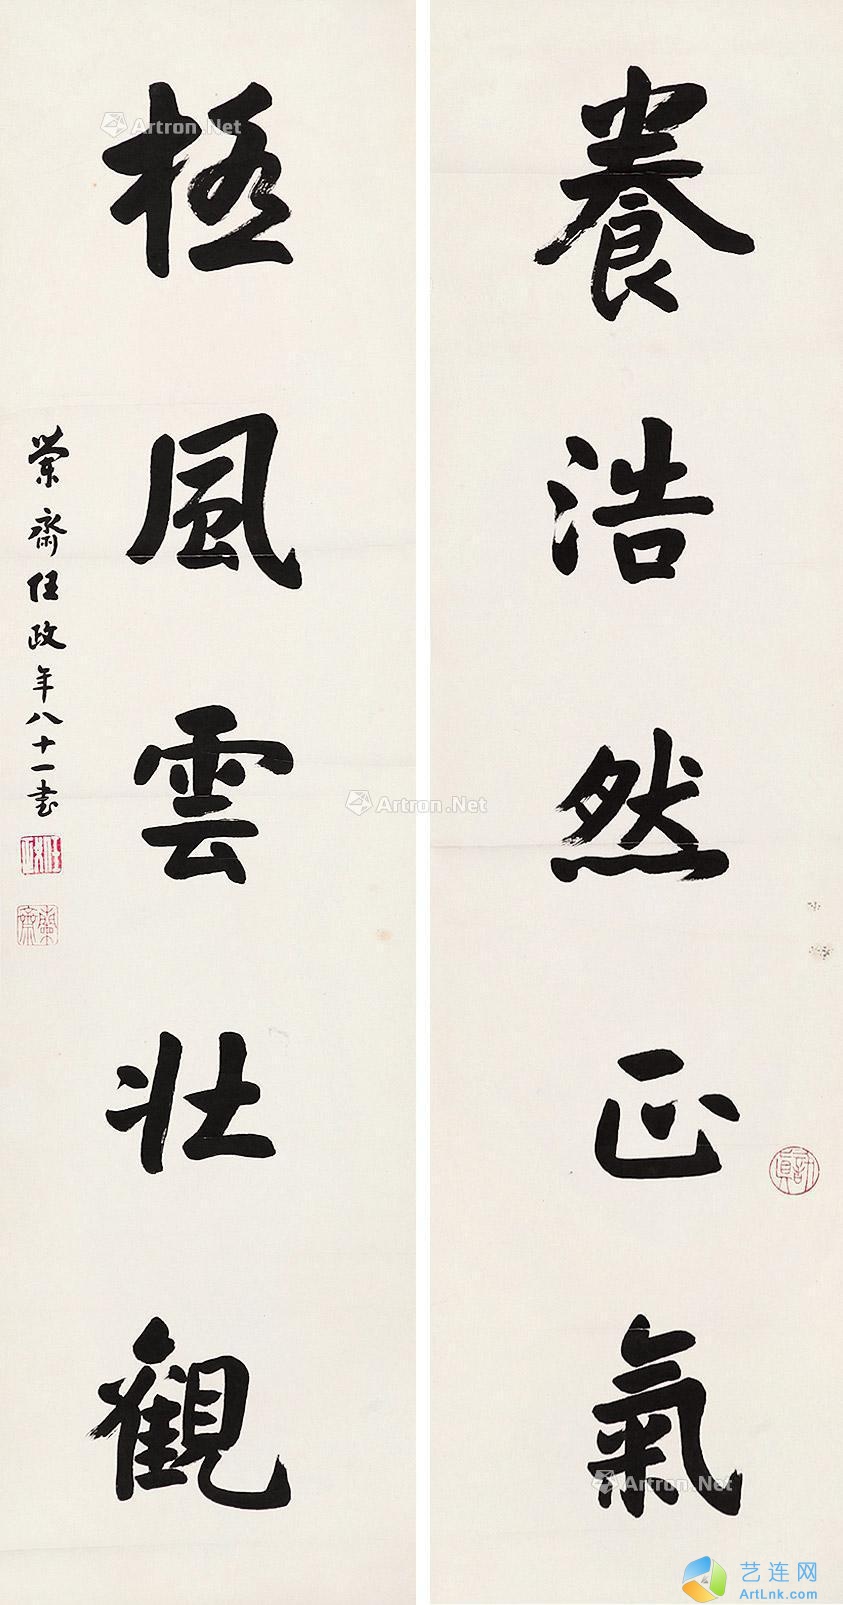 養浩然正氣
極風雲壯觀
蘭齋任政年八十一書
Artron.Net
Artron.Net
Artron.Net
艺连网
ArtLnk.com